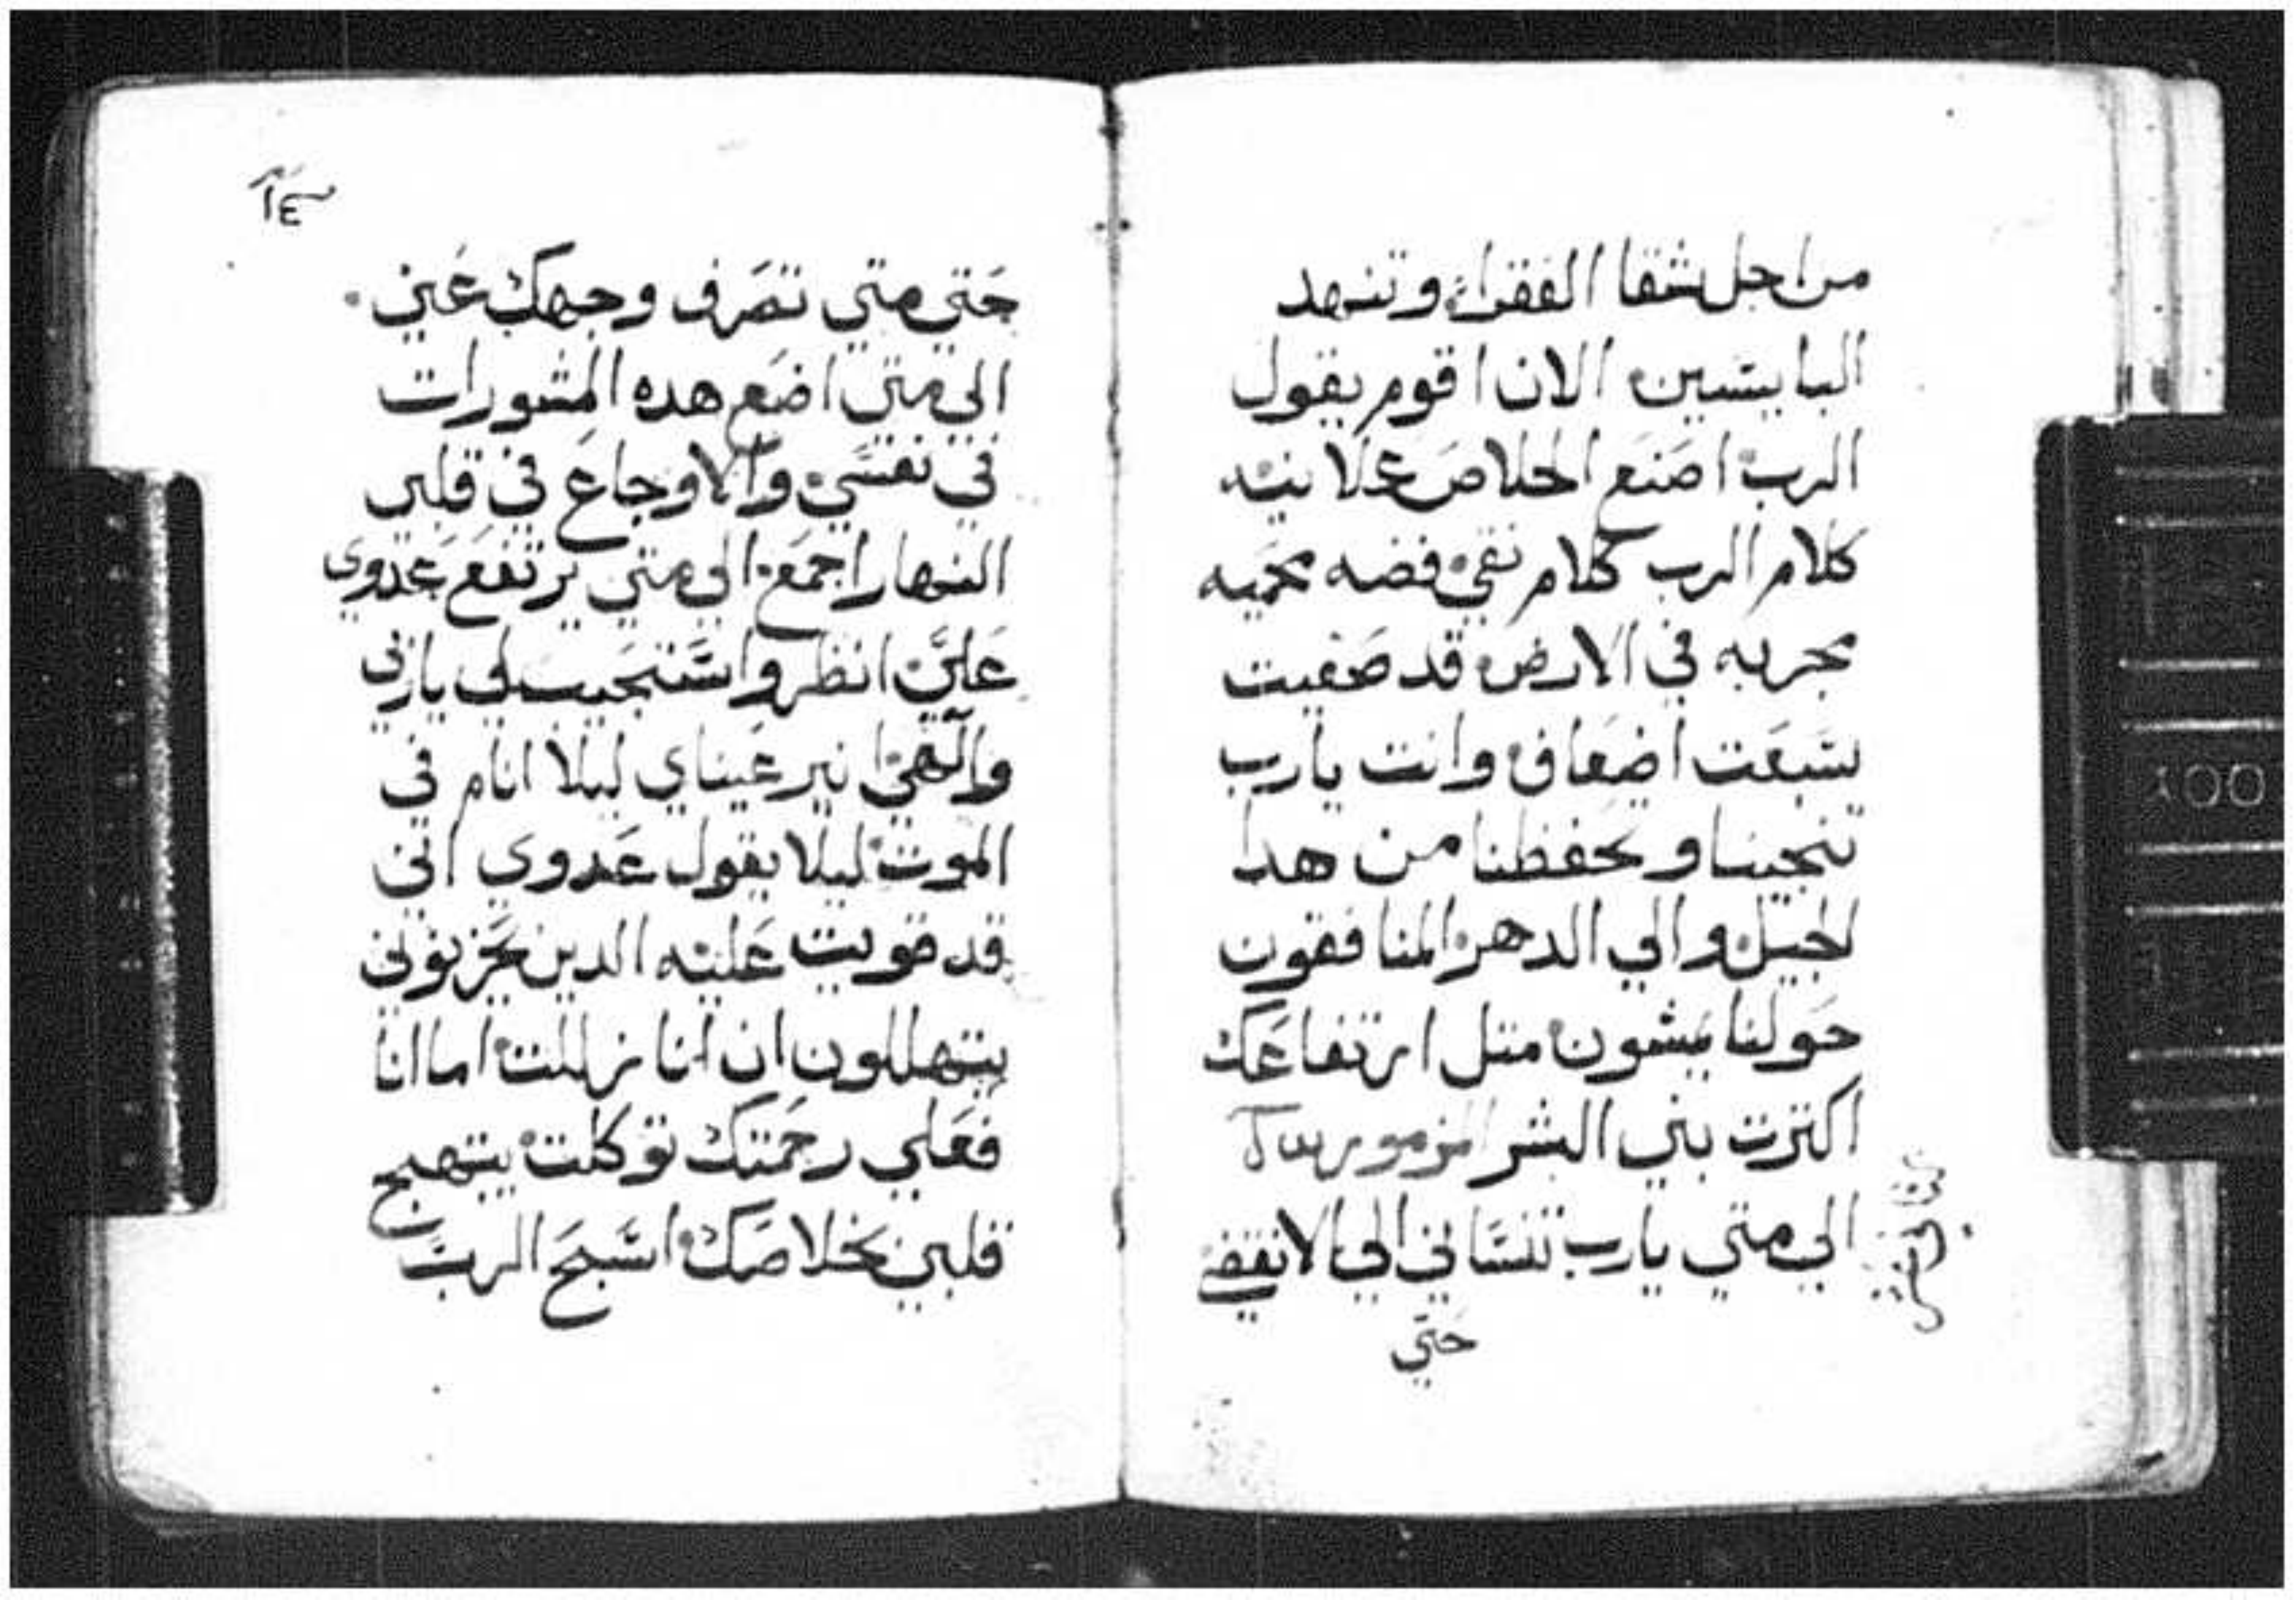 من اجل شقا الفقراء وتنهد
البايسين الان اقوم يقول
الرب اصنع الخلاص علانيه
كلام الرب كلام نقي فضه محميه
مجربه في الارض قد صفيت
سبعت اضعاف وانت يارب
تنجينا وتحفظنا من هدا
الجيل والي الدهر المنافقون
حولنا يمشون متل ارتفاعك
اكترت بني البشر المزمور
الي متي يارب تنساني الي الانقضي
حتي
١٤
حتي متي تصرف وجهك عني
الي متي اضع هده المشورات
في نفسي والاوجاع في قلبي
النهار اجمع الي متي يرتفع عدوي
علي انظر واستجيب لي ياربي
والهي انير عيناي ليلا انام في
الموت ليلا يقول عدوي اني
قد قويت عليه الدين يحزنوني
يتهللون ان انا زللت اما انا
فعلي رحمتك توكلت يبتهج
قلبي بخلاصك اسبح الرب